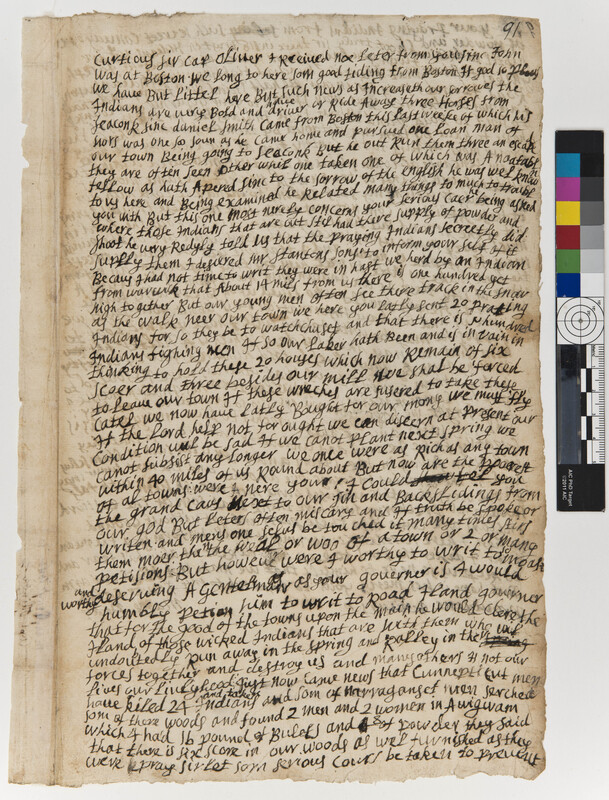 91
Curtious sir cap Oliver I Received noe leter from you sinc John
was at Boston we long to here som good tiding from Boston If god so pleas
we have But littel here But such news as Increaseth our sorrows the
Indians are very Bold and have driven or Ride Away three Horses from
Seaconk sinc daniel Smith Came from Boston this last weeke of which his
hors was one so soun as he Came home and pursued one loan man of
our town Being going to seaconk But he out Run them three an escap
they are often seen other whil one taken one of which was A notabl
fellow as hath Apered sinc to the sorrow of the english he was wel know
to us here and Being examined he Related many things to much to troubl
you with But this one most nerely concerns your serious Caer being asked
where those Indians that are out stil had there supply of powder and
shoot he very Redyly told us that the praying Indians secreetly did
supply them I desiered mr Stantons sons to inform your self of it
Becaus I had not time to writ they were in hast we herd by an Indian
from warwick that About 14 miles from us there is one hundred get
nigh together But our young men often see there track in the snow
as the walk neer our town we here you latly sent 20 praying
Indians for so they be to watchuset and that there is 5 hundred
Indians fighing men If so our laber hath Been and is in vain in
thinking to hold these 20 houses which now Remain of six
scoer and three besides our mill we shal be forced
to leave our town If these wreches are sufered to take these
Catel we now have latly Bought for our mony we must fly
If the Lord help not for ought we can discern at present our
Condition wil be sad If we canot plant next spring we
canot subsist any longer we once were as Rich as any town
within 40 miles of us Round about But now are the poorest
of al towns were I nere you I Could tel you
the grand caus next to our sin and Backslidings from
our god But leters often miscary and If truth be spoke or
writen and mens one selvs be touched it many times stirs
them moer than the weal or woo of a town or 2 or many
petisions But however were I worthy to writ to moast
and worthy deserving A Gentelman as your governer is I would
humbly petion him to writ to Road Iland governer
that for the good of the towns upon the main he would clere the
Iland of those wicked Indians that are with them who wil
undoutedly Run away in the spring and Ralley in ther
forces together and destroy us and many others if not our
lives our livlyhood Just now Came news that Cunnecticut men
have killed and taken 24 Indians and som of narragansot men serched
som of there woods and found 2 men and 2 women in A wigwam
which 4 had 16 pound of Bulets and of powder they said
that there is six score in our woods as wel furnished as they
were I pray sir let som serious Cours be taken to prevent